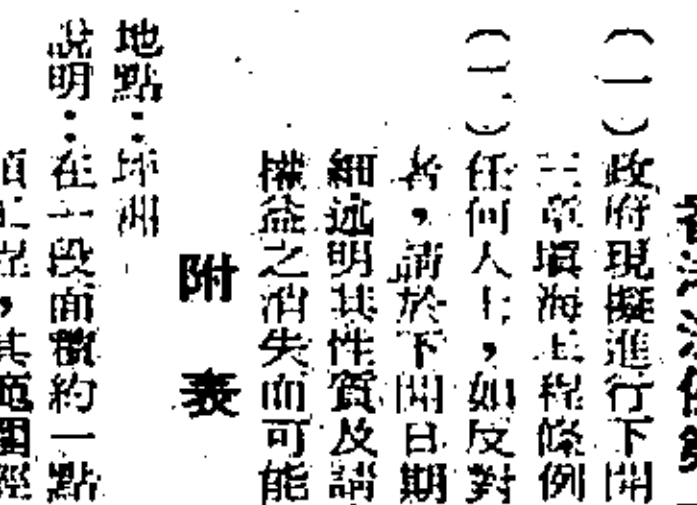 香港法例第
(一)政府現擬進行下開
三章填海工程條例
(二)任何人士,如反對
者,請於下開日期
細述明其性質及請
權益之消失而可能
附 表
地點:坪洲
說明:在一段面積約一點
項工程,其範圍經